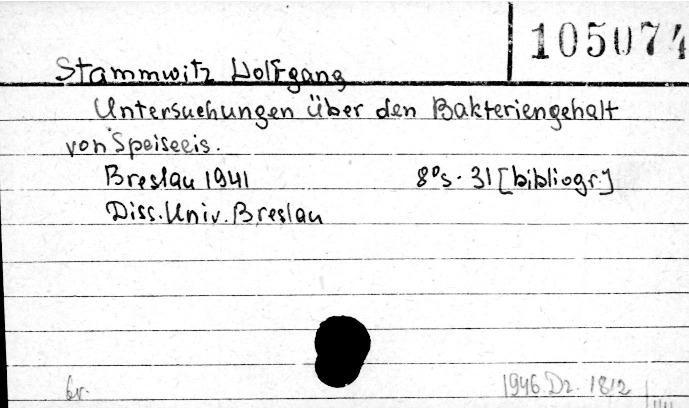 105074
Stammwitz Wolfgang
Untersuchungen über den Bakteriengehalt
von Speiseeis.
Breslau 1941 8° s. 31 [bibliogr.]
Diss. Univ. Breslau
1946 Dz. 1812